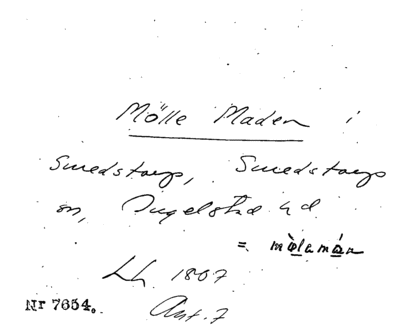 Mölle Maden i
Smedstorp, Smedstorps
sn, Ingelstad hd
= mølamán
Lh 1807
Ant. 7
Nr 7654.